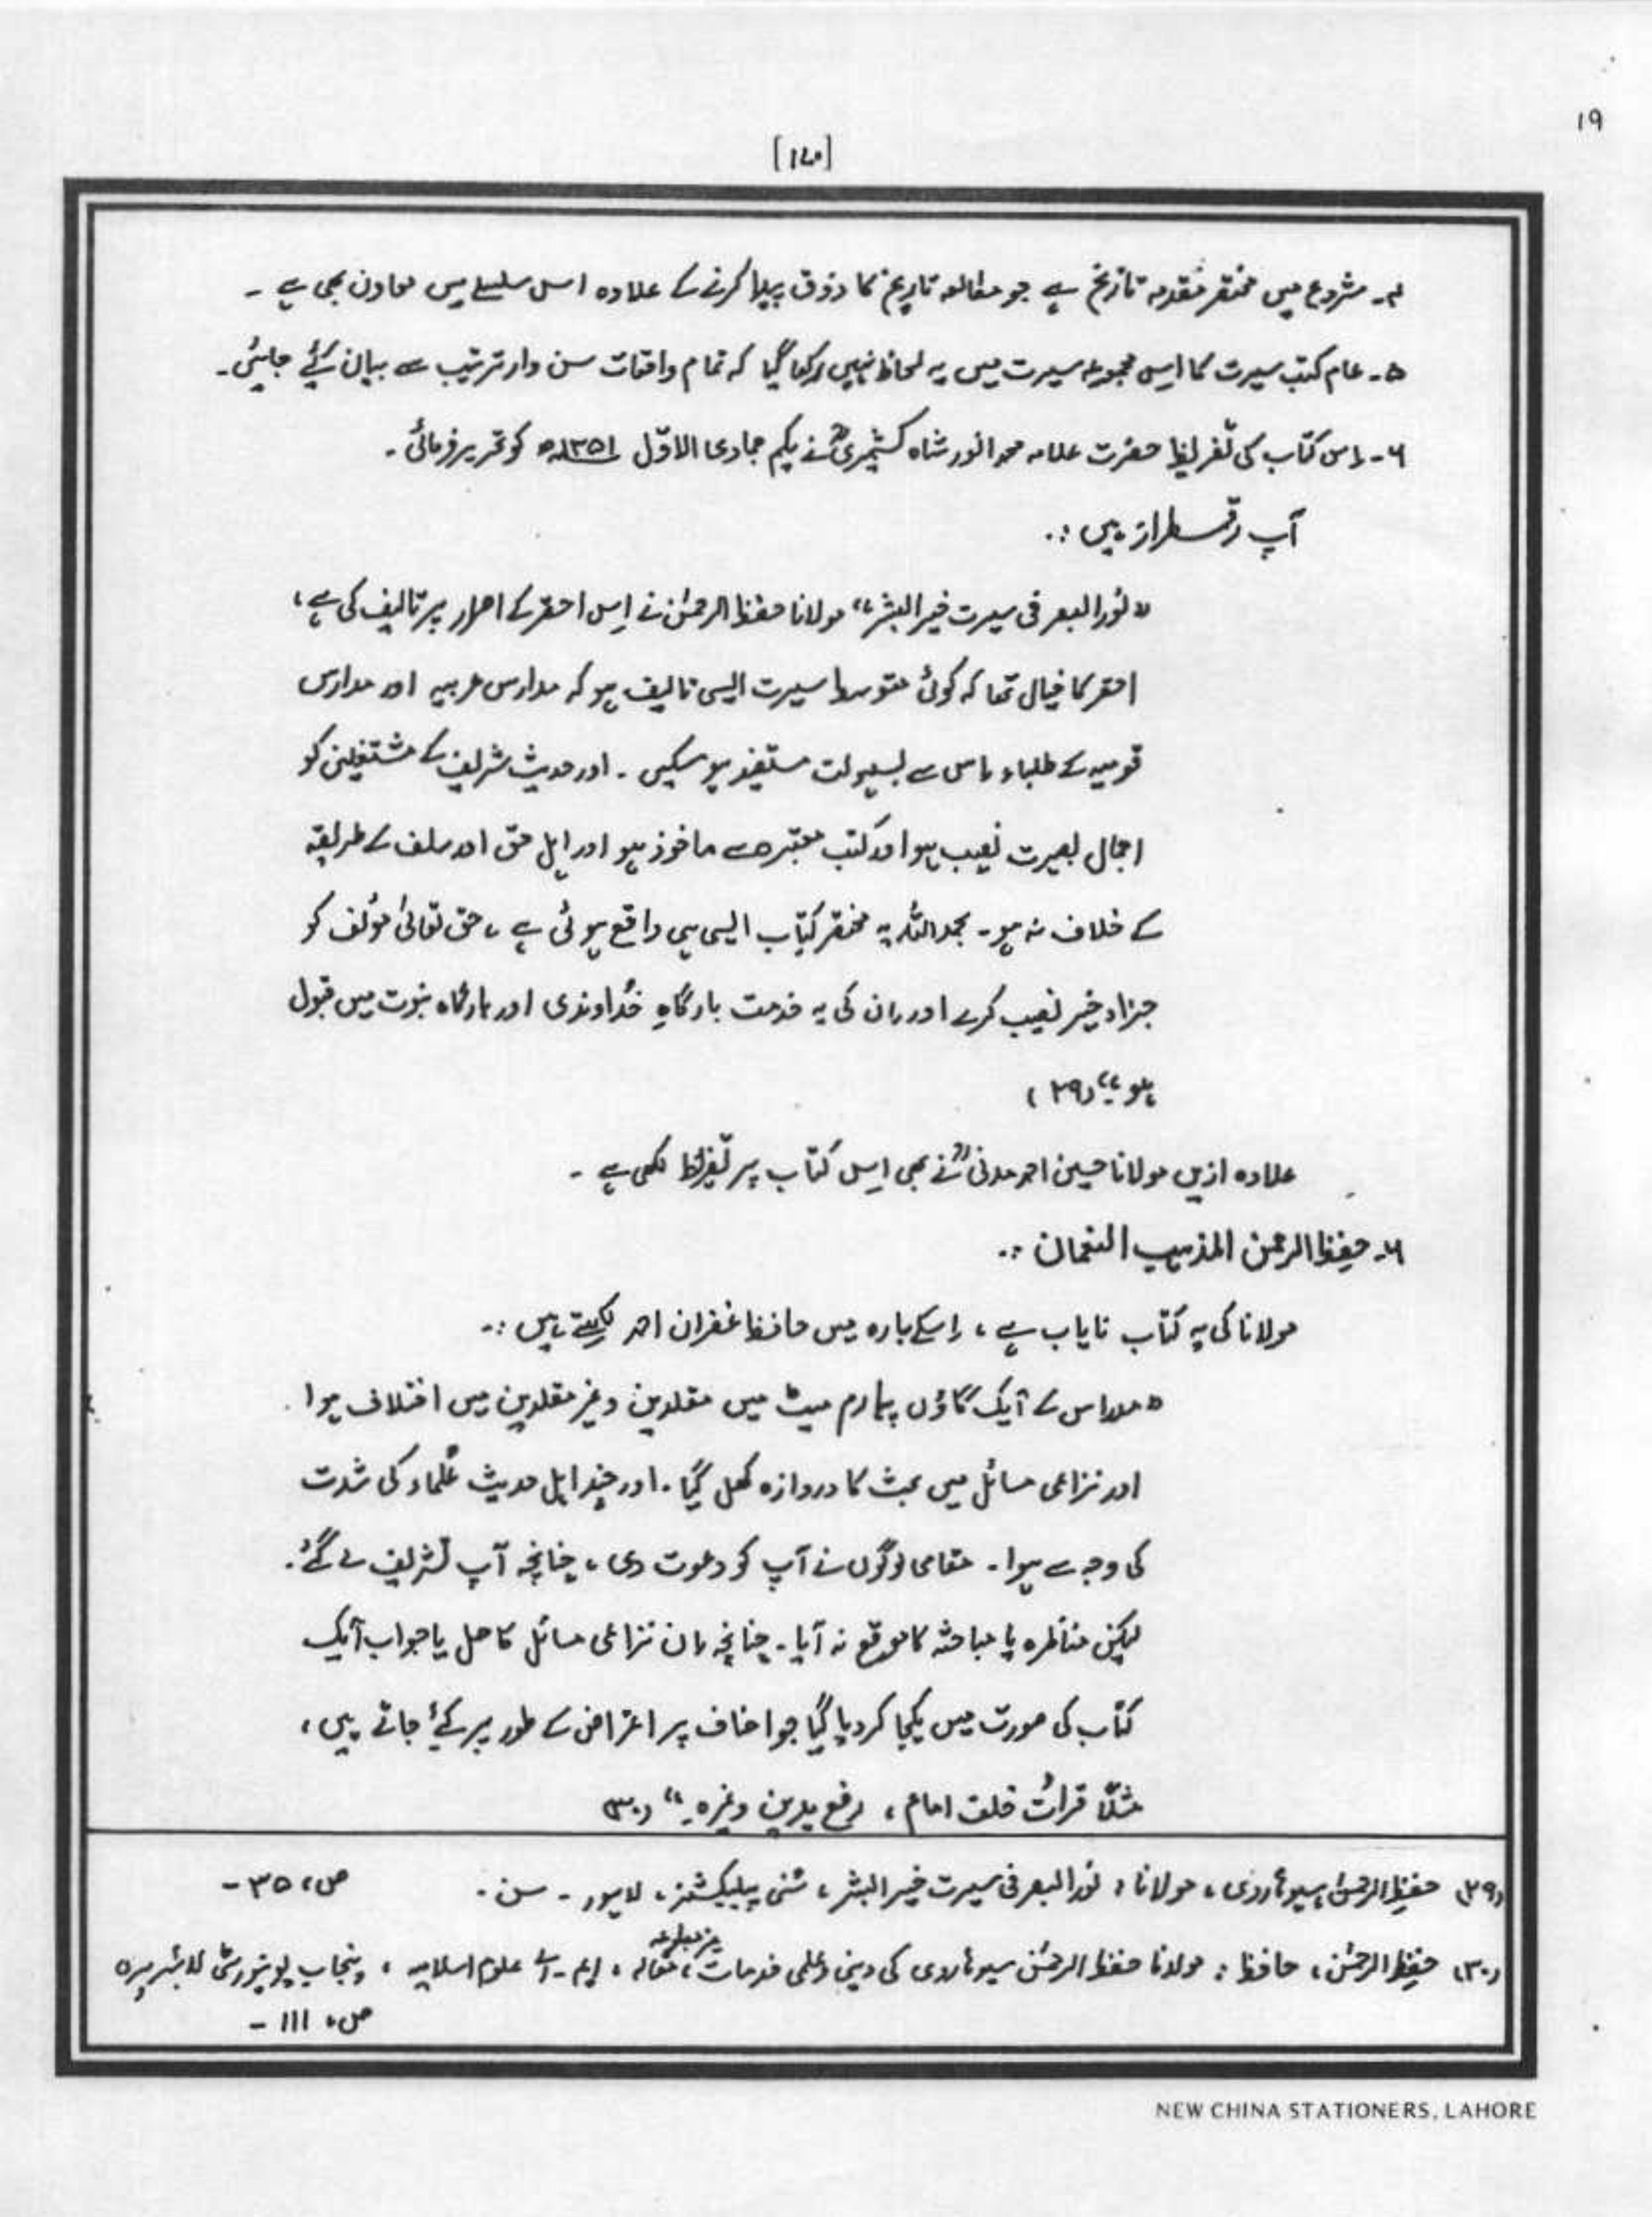 ۱۹
[۱۷۰]
۴۔ شروع میں مختصر مقدمہ تاریخ ہے جو مطالعہ تاریخ کا ذوق پیدا کرنے کے علاوہ اس سلسلے میں معاون بھی ہے ۔
۵۔ عام کتب سیرت کا اس مجموعہ سیرت میں یہ لحاظ نہیں رکھا گیا کہ تمام واقعات سن وار ترتیب سے بیان کیے جائیں۔
۶۔ اس کتاب کی تقریظ حضرت علامہ محمد انور شاہ کشمیریؒ نے یکم جمادی الاوّل ۱۳۵۱ھ کو تحریر فرمائی ۔
آپ رقمطراز ہیں :۔
"نُور البصر فی سیرت خیر البشر"، مولانا حفظ الرحمٰن نے اِس احقر کے اصرار پر تالیف کی ہے،
احقر کا خیال تھا کہ کوئی متوسط سیرت ایسی تالیف ہو کہ مدارس عربیہ اور مدارس
قومیہ کے طلباء اس سے بسہولت مستفید ہو سکیں ۔ اور حدیث شریف کے مشتغلین کو
اجمال بصیرت نصیب ہو اور کتب معتبرہ سے ماخوذ ہو اور اہل حق اور سلف کے طریقہ
کے خلاف نہ ہو ۔ بحمد اللہ یہ مختصر کتاب ایسی ہی واقع ہوئی ہے ، حق تعالیٰ مؤلف کو
جزاء خیر نصیب کرے اور ان کی یہ خدمت بارگاہِ خُداوندی اور بارگاہ نبوت میں قبول
ہو ۔" (۲۹)
علاوہ ازیں مولانا حسین احمد مدنیؒ نے بھی اس کتاب پر تقریظ لکھی ہے ۔
۶۔ حفظ الرحمٰن المذہب النعمان :۔
مولانا کی یہ کتاب نایاب ہے ، اسکے بارہ میں حافظ غفران احمد لکھتے ہیں :۔
"مدراس کے ایک گاؤں پیارم میٹ میں مقلدین و غیر مقلدین میں اختلاف ہوا ۔
اور نزاعی مسائل میں بحث کا دروازہ کھل گیا ۔ اور چند اہل حدیث عُلماء کی شدت
کی وجہ سے ہوا ۔ مقامی لوگوں نے آپ کو دعوت دی ، چنانچہ آپ تشریف لے گئے ۔
لیکن مناظرہ یا مباحثہ کا موقع نہ آیا ۔ چنانچہ ان نزاعی مسائل کا حل یا جواب ایک
کتاب کی صورت میں یکجا کر دیا گیا جو احناف پر اعتراض کے طور پر کیے جاتے ہیں ،
مثلاً قراتُ خلف امام ، رفع یدین وغیرہ ۔" (۳۰)
(۲۹) حفظ الرحمٰن سیوہاروی ، مولانا : نُور البصر فی سیرت خیر البشر ، سُنی پبلیکیشنز ، لاہور ۔ سن ۔ ص، ۳۵ ۔
(۳۰) حفظ الرحمٰن ، حافظ : مولانا حفظ الرحمٰن سیوہاروی کی دینی و علمی خدمات ، غیر مطبوعہ مقالہ ، ایم ۔ اے علوم اسلامیہ ، پنجاب یونیورسٹی لائبریری
ص، ۱۱۱ ۔
NEW CHINA STATIONERS, LAHORE